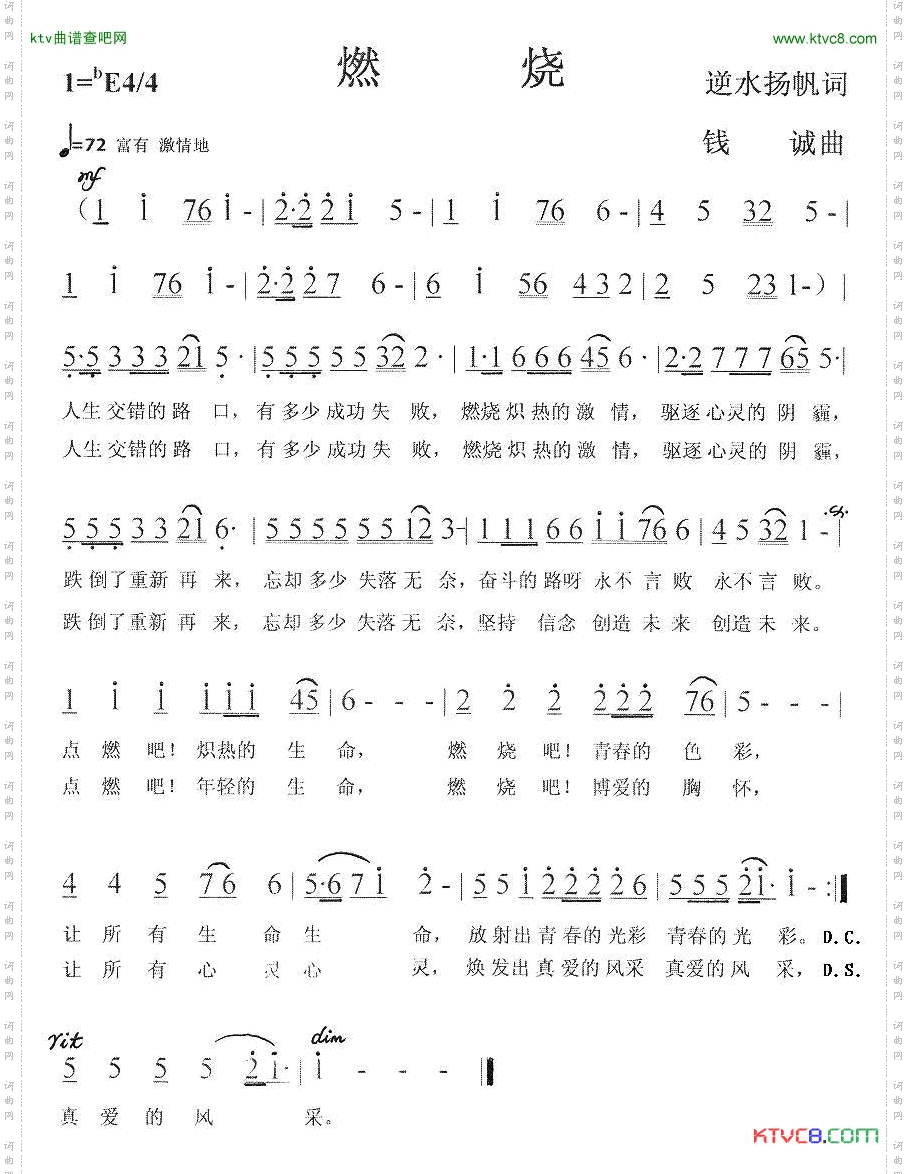 ktv曲谱查吧网
www.ktvc8.com
燃 烧
1=ᵇE4/4
逆水扬帆词
♩=72 富有 激情地
钱 诚曲
mf
（1 i 76 i - | 2·2 2 i 5 - | 1 i 76 6 - | 4 5 32 5 - |
1 i 76 i - | 2·2 2 7 6 - | 6 i 56 4 3 2 | 2 5 23 1 - ）|
5·5 3 3 3 21 5 · | 5 5 5 5 5 32 2 · | 1·1 6 6 6 45 6 · | 2·2 7 7 7 65 5 · |
人生 交错的 路 口，有 多少 成功 失 败，燃烧 炽 热的 激 情，驱逐 心灵的 阴 霾，
人生 交错的 路 口，有 多少 成功 失 败，燃烧 炽 热的 激 情，驱逐 心灵的 阴 霾，
5 5 5 3 3 21 6· | 5 5 5 5 5 5 12 3 - | 1 1 1 6 6 i i 76 6 | 4 5 32 1 - |
跌 倒了 重新 再 来，忘却 多少 失落 无 奈，奋斗的 路呀 永不 言 败 永不 言 败。
跌 倒了 重新 再 来，忘却 多少 失落 无 奈，坚持 信念 创造 未 来 创造 未 来。
1 i i i i i 45 | 6 - - - | 2 2 2 2 2 2 76 | 5 - - - |
点 燃 吧！炽热的 生 命， 燃 烧 吧！青春的 色 彩，
点 燃 吧！年轻的 生 命， 燃 烧 吧！博爱的 胸 怀，
4 4 5 76 6 | 5·6 7 i 2 - | 5 5 i 2 2 2 2 6 | 5 5 5 2 i· i - :|
让 所 有 生 命 生 命，放 射 出 青 春的 光彩 青春的 光 彩。D.C.
让 所 有 心 灵 心 灵，焕 发 出 真 爱的 风采 真爱的 风 采，D.S.
rit dim
5 5 5 5 2 i· | i - - - ‖
真 爱 的 风 采。
KTVC8.COM